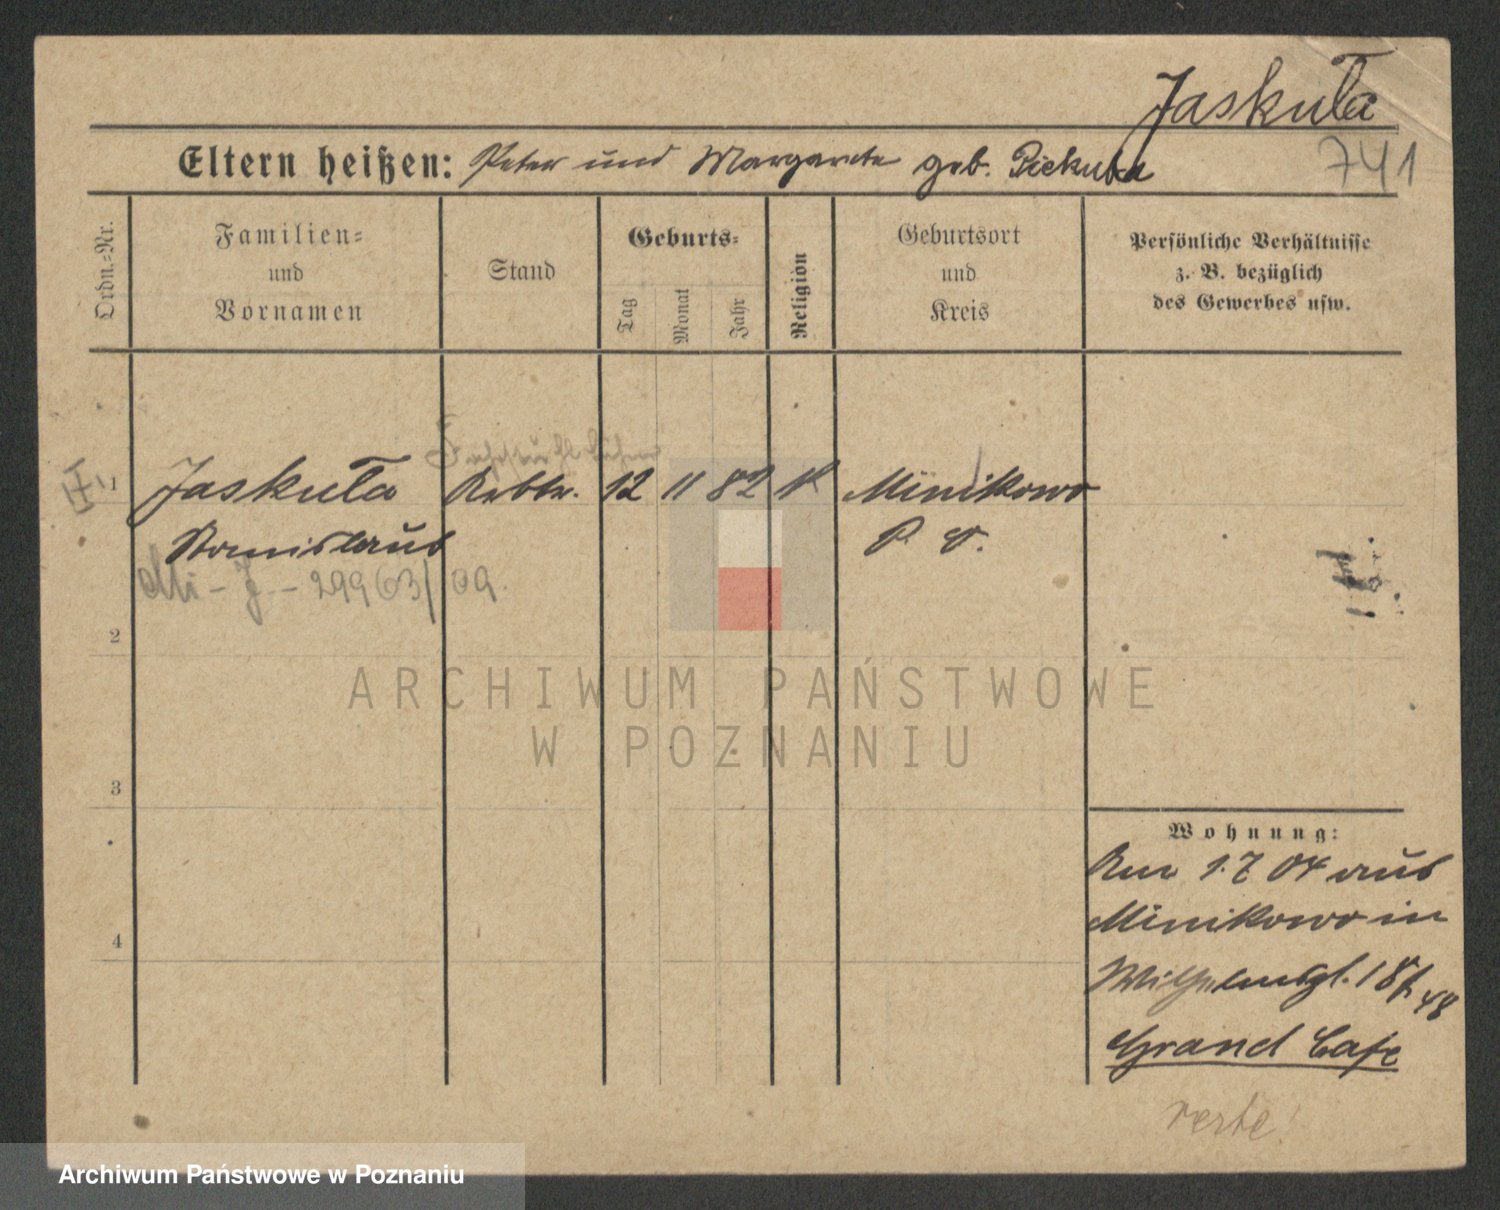 Jaskuła
741
Eltern heißen: Peter und Margarete geb. Piekuta
Ordn.=Nr.
Familien=
und
Vornamen
Stand
Geburts=
Tag
Monat
Jahr
Religion
Geburtsort
und
Kreis
Persönliche Verhältnisse
z. B. bezüglich
des Gewerbes usw.
1 Jaskuła Arbtr. 12 11 82 K Minikowo
Stanislaus P. O.
29963/09.
2
3
4
Wohnung:
Am 1.7 04 aus
Minikowo in
Wilhelmspl. 18
Grand Cafe
verte!
ARCHIWUM PAŃSTWOWE
W POZNANIU
Archiwum Państwowe w Poznaniu